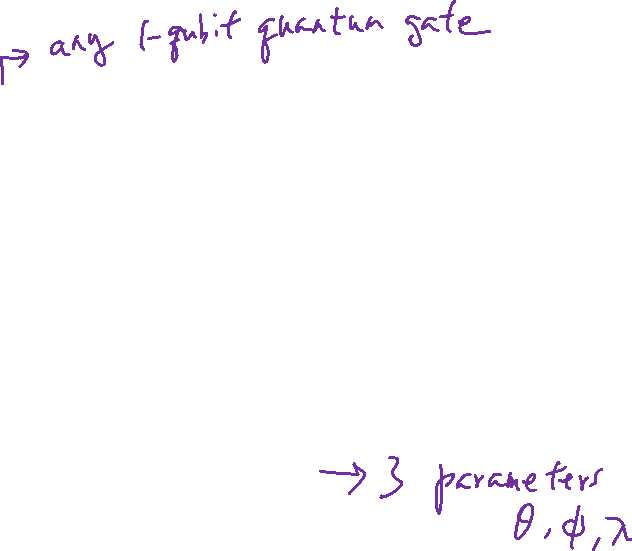 → any 1-qubit quantum gate
→ 3 parameters
θ, ϕ, λ